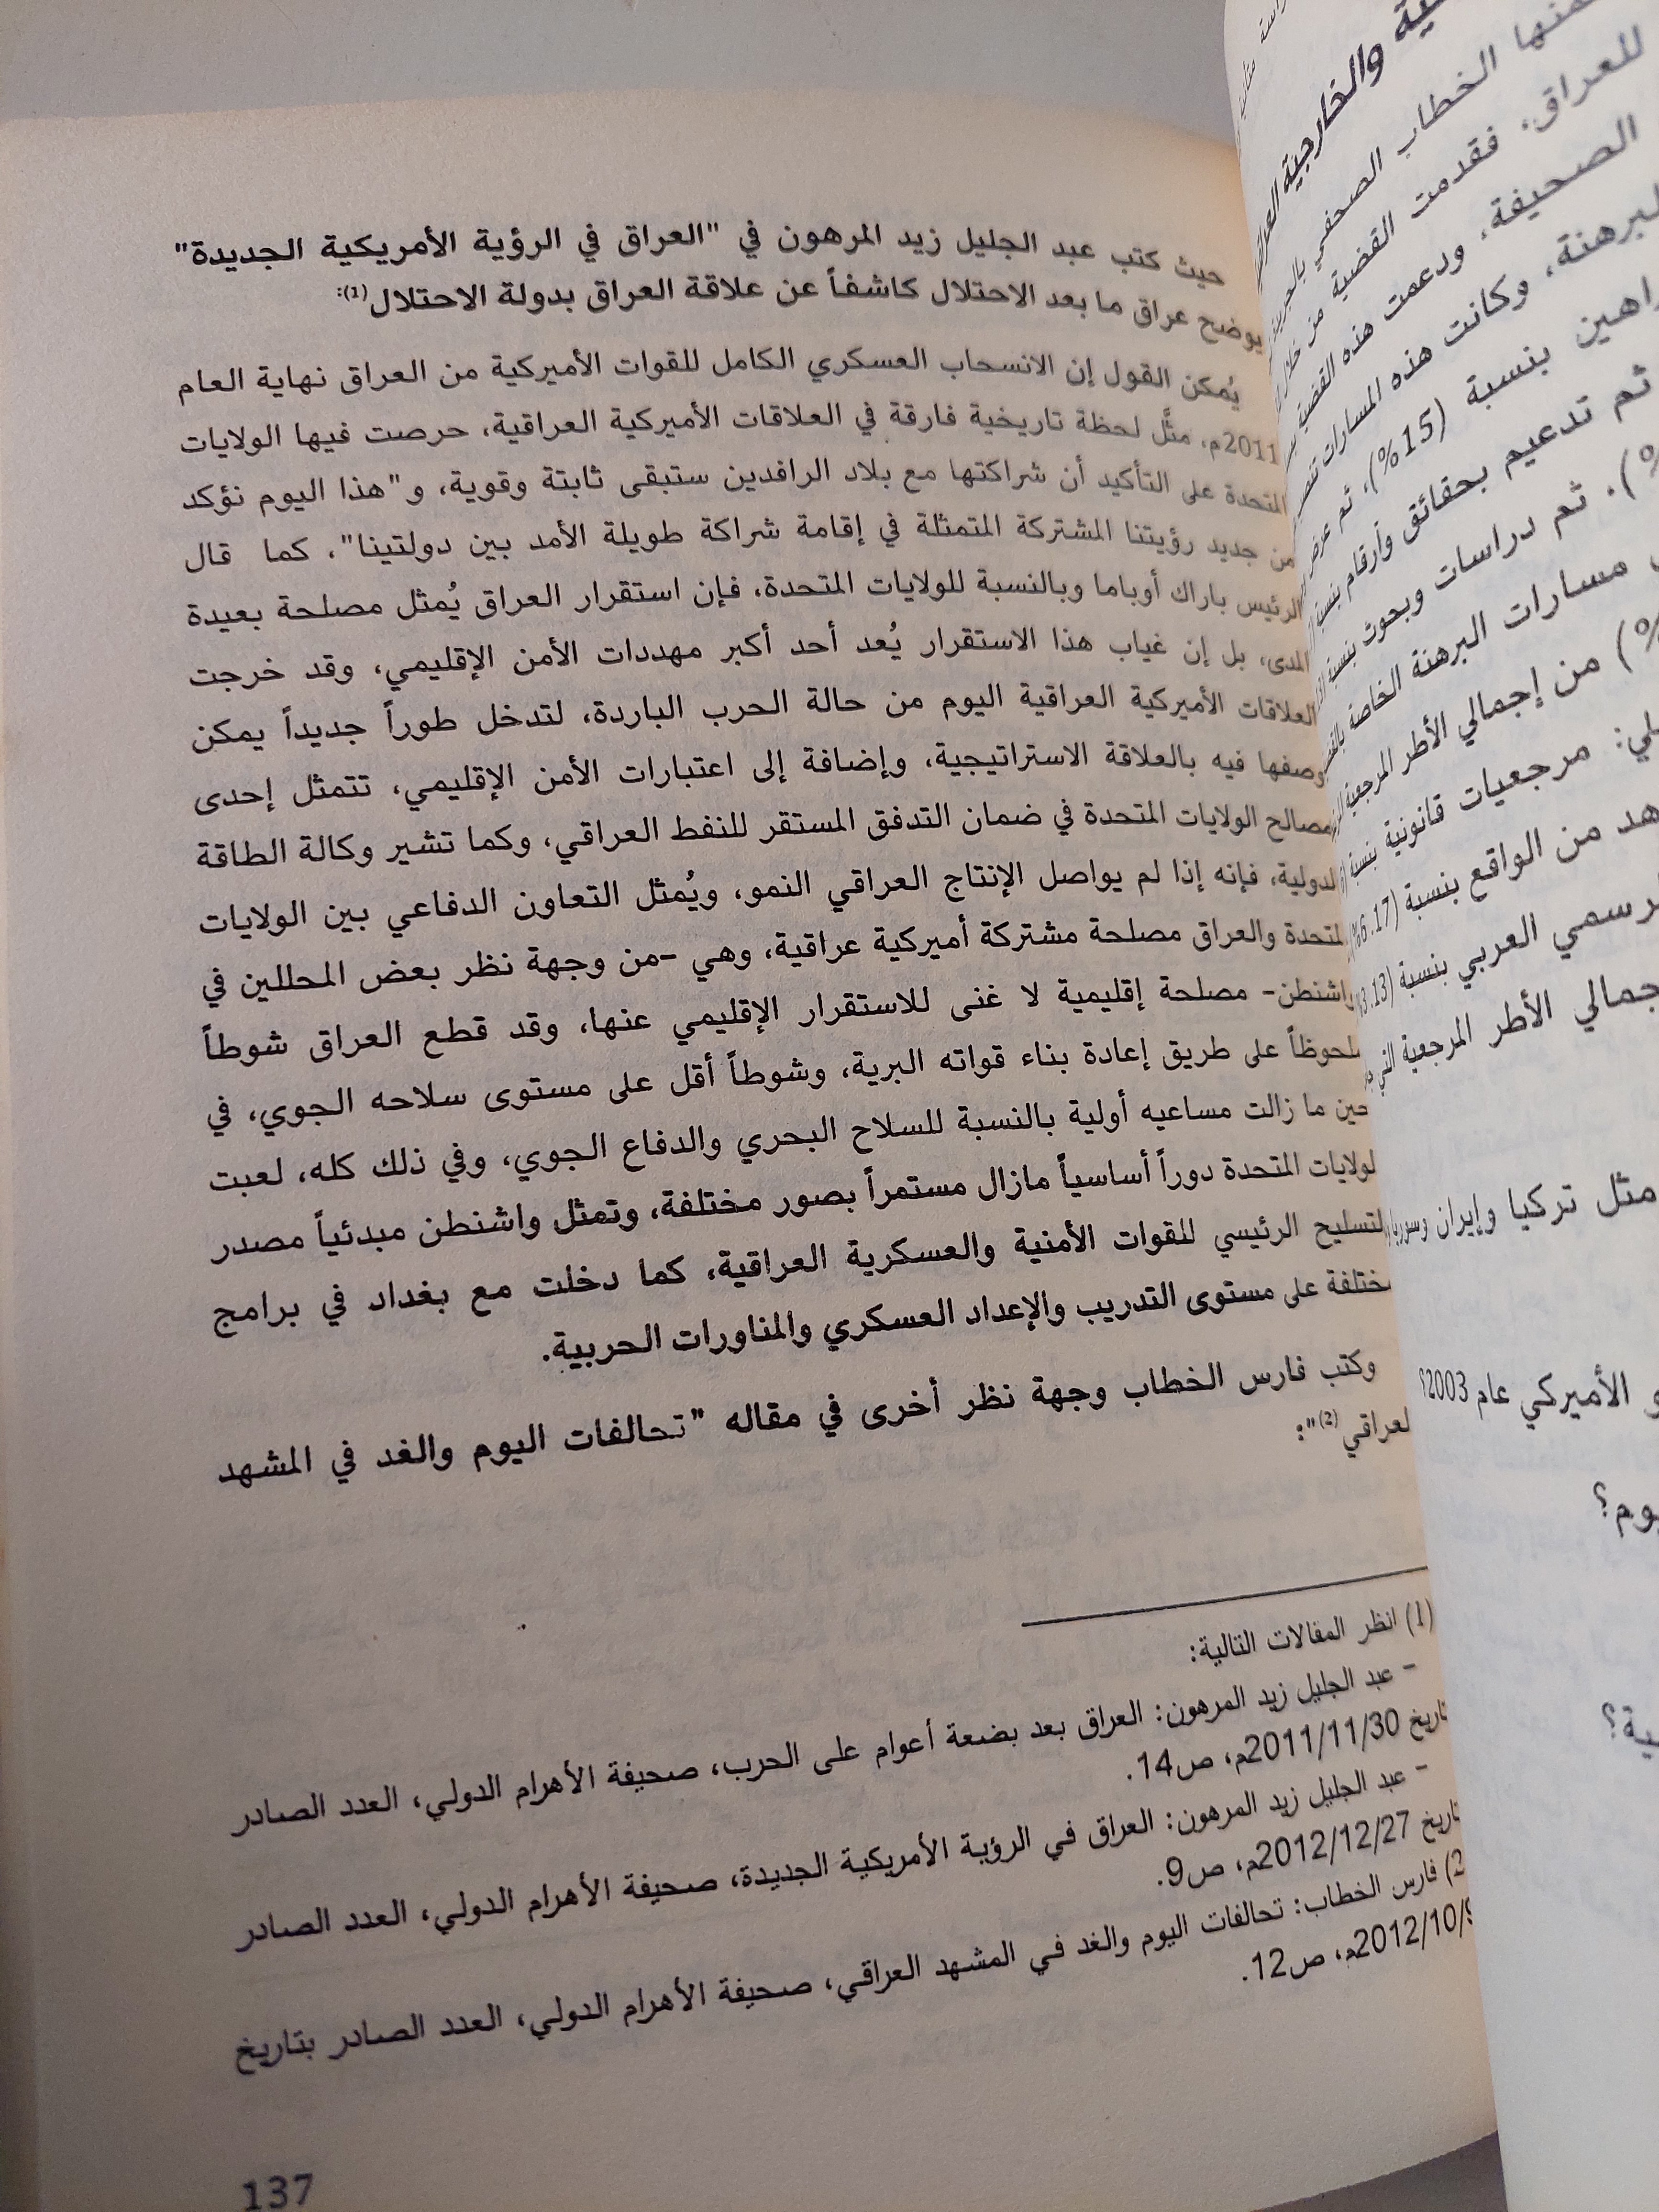 حيث كتب عبد الجليل زيد المرهون في "العراق في الرؤية الأمريكية الجديدة"
يوضح عراق ما بعد الاحتلال كاشفاً عن علاقة العراق بدولة الاحتلال(1):
يُمكن القول إن الانسحاب العسكري الكامل للقوات الأميركية من العراق نهاية العام
2011م، مثَّل لحظة تاريخية فارقة في العلاقات الأميركية العراقية، حرصت فيها الولايات
المتحدة على التأكيد أن شراكتها مع بلاد الرافدين ستبقى ثابتة وقوية، و"هذا اليوم نؤكد
من جديد رؤيتنا المشتركة المتمثلة في إقامة شراكة طويلة الأمد بين دولتينا"، كما قال
الرئيس باراك أوباما وبالنسبة للولايات المتحدة، فإن استقرار العراق يُمثل مصلحة بعيدة
المدى، بل إن غياب هذا الاستقرار يُعد أحد أكبر مهددات الأمن الإقليمي، وقد خرجت
العلاقات الأميركية العراقية اليوم من حالة الحرب الباردة، لتدخل طوراً جديداً يمكن
وصفها فيه بالعلاقة الاستراتيجية، وإضافة إلى اعتبارات الأمن الإقليمي، تتمثل إحدى
مصالح الولايات المتحدة في ضمان التدفق المستقر للنفط العراقي، وكما تشير وكالة الطاقة
الدولية، فإنه إذا لم يواصل الإنتاج العراقي النمو، ويُمثل التعاون الدفاعي بين الولايات
المتحدة والعراق مصلحة مشتركة أميركية عراقية، وهي -من وجهة نظر بعض المحللين في
واشنطن- مصلحة إقليمية لا غنى للاستقرار الإقليمي عنها، وقد قطع العراق شوطاً
ملحوظاً على طريق إعادة بناء قواته البرية، وشوطاً أقل على مستوى سلاحه الجوي، في
حين ما زالت مساعيه أولية بالنسبة للسلاح البحري والدفاع الجوي، وفي ذلك كله، لعبت
الولايات المتحدة دوراً أساسياً مازال مستمراً بصور مختلفة، وتمثل واشنطن مبدئياً مصدر
التسليح الرئيسي للقوات الأمنية والعسكرية العراقية، كما دخلت مع بغداد في برامج
مختلفة على مستوى التدريب والإعداد العسكري والمناورات الحربية.
وكتب فارس الخطاب وجهة نظر أخرى في مقاله "تحالفات اليوم والغد في المشهد
العراقي(2)":
(1) انظر المقالات التالية:
- عبد الجليل زيد المرهون: العراق بعد بضعة أعوام على الحرب، صحيفة الأهرام الدولي، العدد الصادر
تاريخ 2011/11/30م، ص14.
- عبد الجليل زيد المرهون: العراق في الرؤية الأمريكية الجديدة، صحيفة الأهرام الدولي، العدد الصادر
تاريخ 2012/12/27م، ص9.
(2) فارس الخطاب: تحالفات اليوم والغد في المشهد العراقي، صحيفة الأهرام الدولي، العدد الصادر بتاريخ
2012/10/9م، ص12.
137
والخارجية
الخطاب الصحفي
للعراق، فقدمت القضية من خلال
الصحيفة، ودعمت هذه القضية
وكانت هذه المسارات
بنسبة (15%)، ثم عرض
ثم تدعيم بحقائق وأرقام بنسبة
ثم دراسات وبحوث بنسبة
مسارات البرهنة الخاصة
من إجمالي الأطر المرجعية
مرجعيات قانونية بنسبة
من الواقع بنسبة (6.17%)
العربي بنسبة
الأطر المرجعية التي
مثل تركيا وإيران وسوريا
الأميركي عام 2003؟